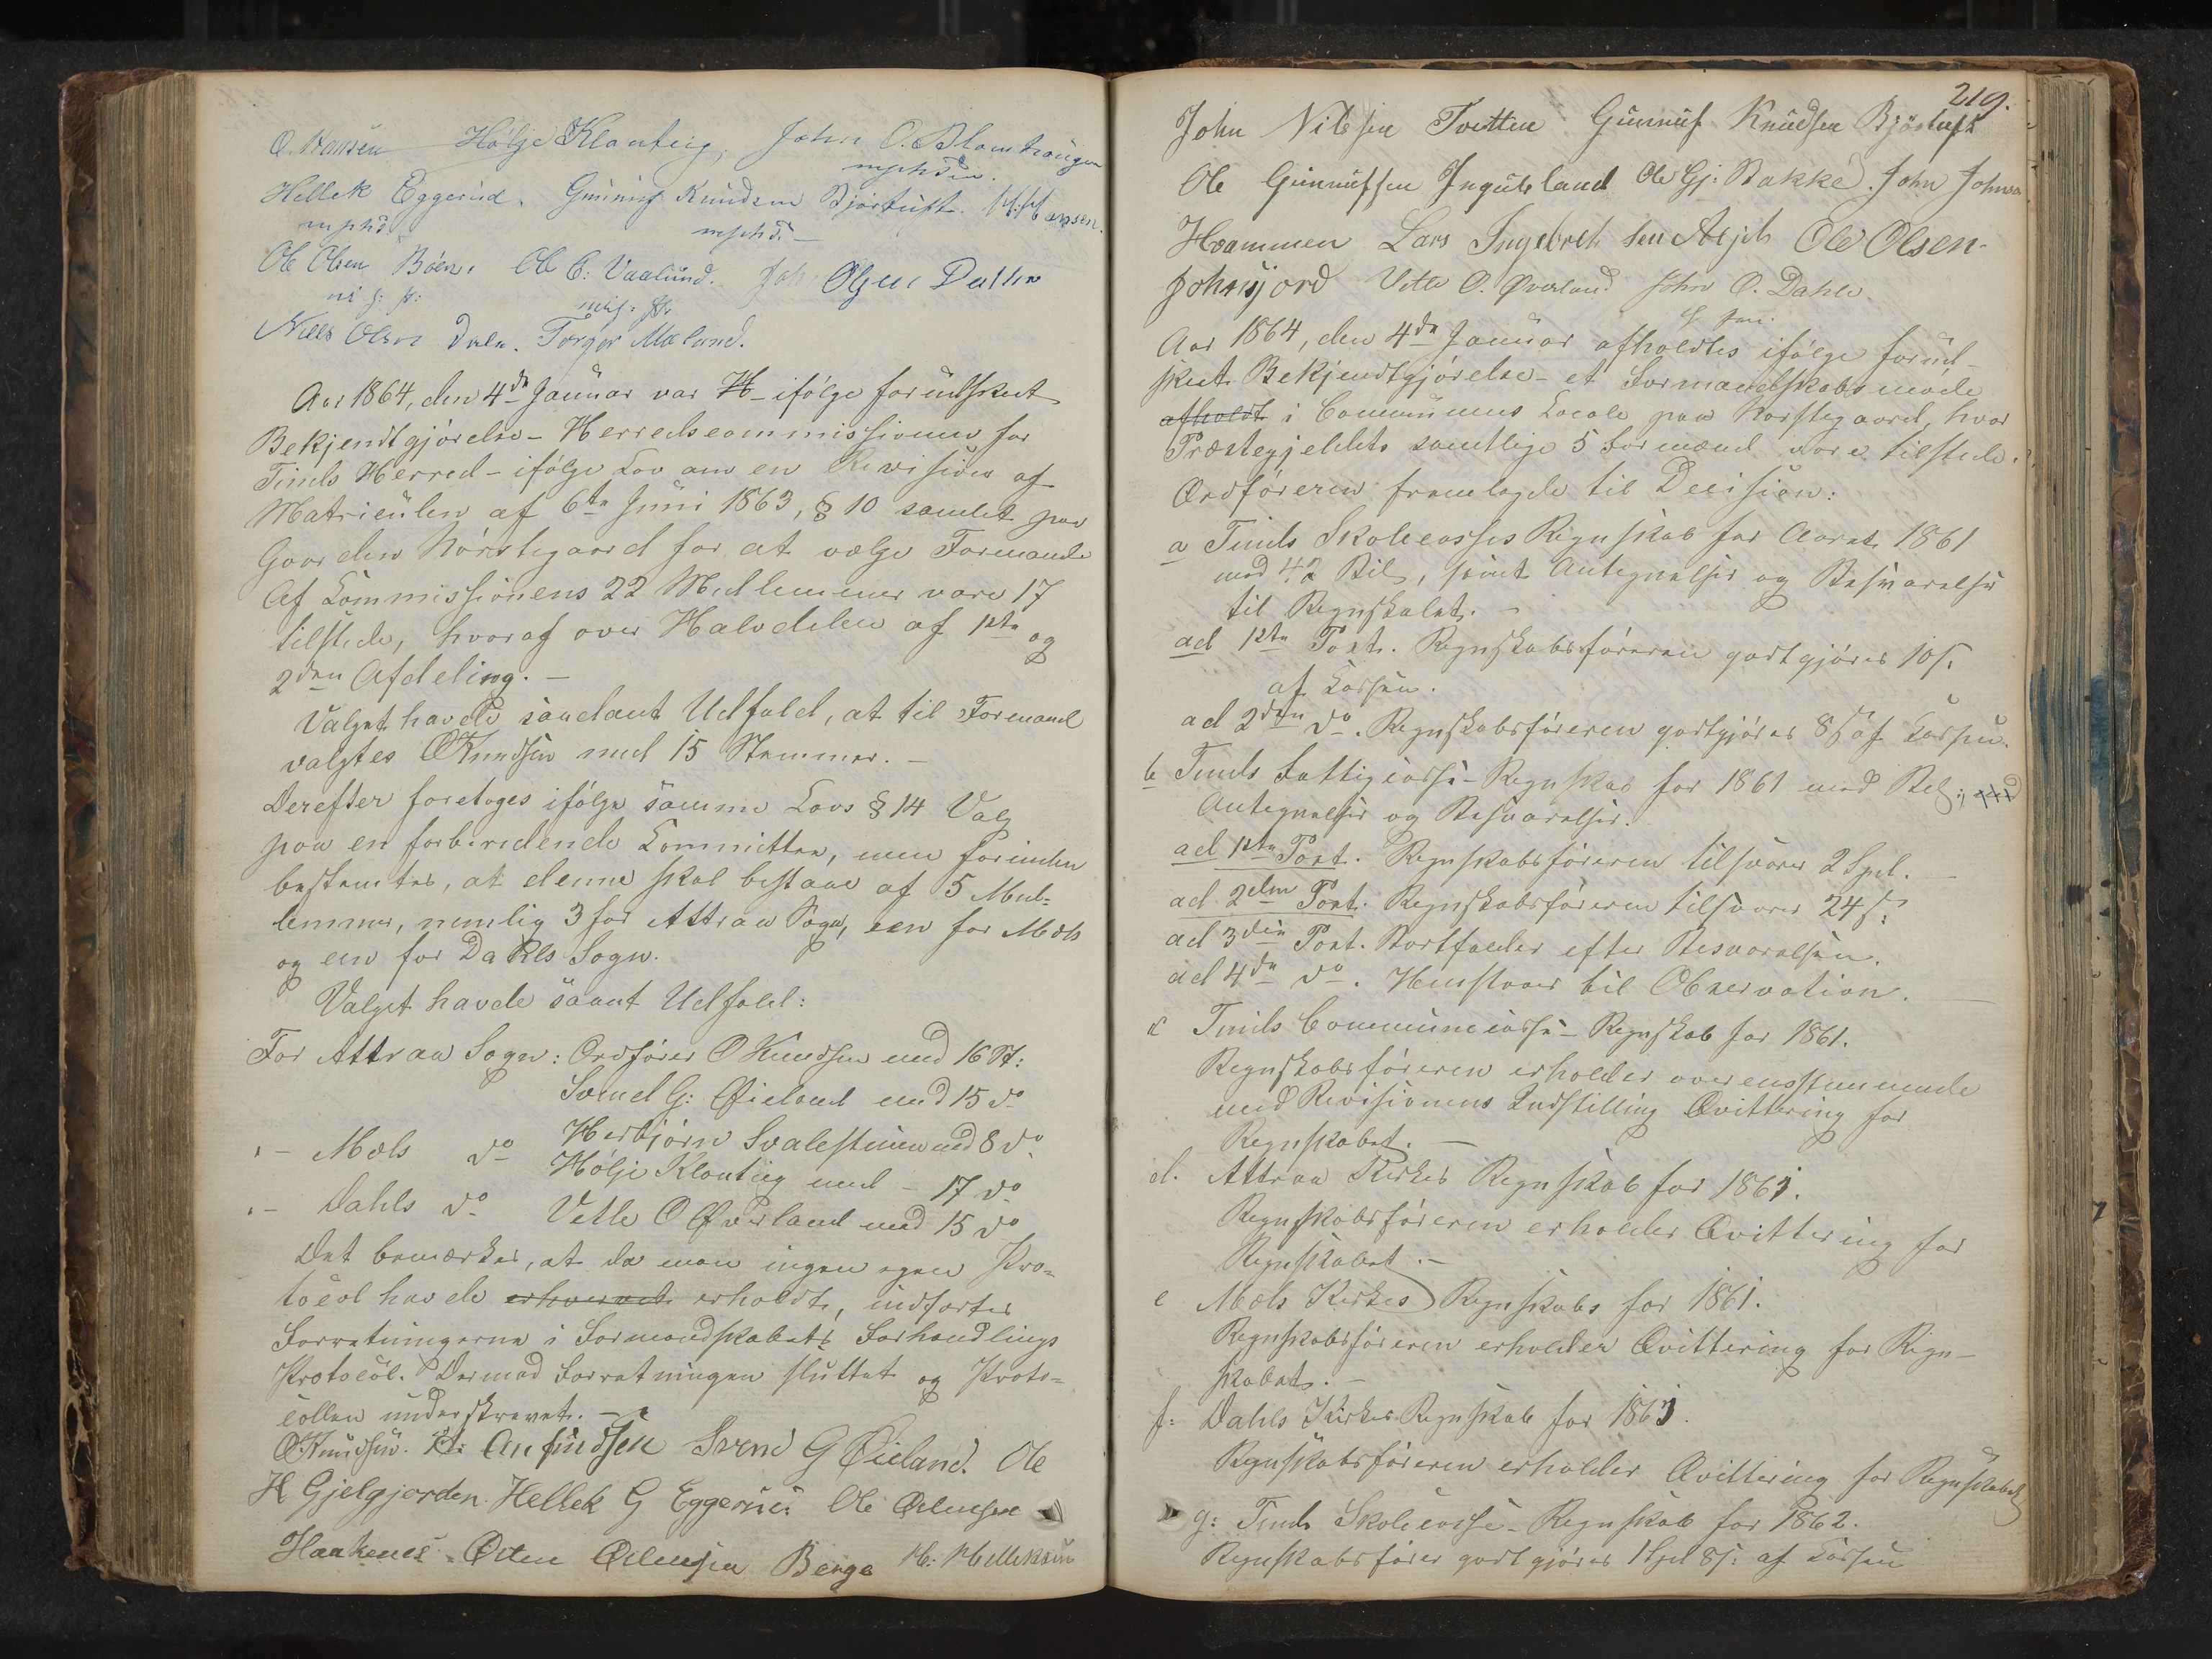 O. Hansen Hølje Klonteig. John O. Blomhaugen
mphdin.
Hellek Eggerud. Gunnuf Knudsen Bjørtuft. H. Hansen.
mphd. mphd. –
Ole Olsen Bøen. Ole C: Vaalund. Joh Olsen Dallen
m f: p:
Niels Olsen Dale. Torger Mæland.
Aar 1864, den 4de Januar var H – ifølge forudskeet
Bekjendtgjørelse – Herredscommissionen for
Tinds Herred – ifølge Lov om en Revision af
Matriculen af 6te Juni 1863, § 10 samlet paa
Gaarden Nørstegaard for at vælge Formand.
Af Kommissionens 22 Medlemmer vare 17
tilstede, hvoraf over Halvdelen af 1ste og
2den Afdeling. –
Valget havde saadant Udfald, at til Formand
valgtes O Knudsen med 15 Stemmer. –
Derefter foretoges ifølge samme Lovs § 14 Valg
paa en forberedende Committee, men forinden
bestemtes, at denne skal bestaae af 5 Med=
lemmer, nemlig 3 for Attraa Sogn, een for Mæls
og een for Dahls Sogn.
Valget havde saant Udfald:
For Attraa Sogn: Ordfører O Knudsen med 16 St:
Svend G: Øieland med 15 do
Herbjørn Svalesteinen med 8 do
" – Mæls do Hølje Klonteig med – 17 do
" – Dahls do Vetle O Øverland med 15 do
Det bemærkes, at da man ingen egen Pro=
tocol havde erhvervet erholdt, indførtes
Forretningerne i Formandskabets Forhandlings
Protocol. Dermed Forretningen sluttet og Proto=
collen underskrevet. –
OKnudsen. Anfindsen Svend G Øieland. Ole
H Gjelgjorden. Hellek G Eggerud. Ole Østensen
Haakenes. Østen Østensen Berge H: Helleksen
219.
John Nilssen Tveitten Gunnuf Knudsen Bjørtuft
Ole Gunnufsen Ingulsland Ole Gj: Bakke. John Johnsen
Hvammen Lars Ingebretsen Ole Olsen
Johnsjord Vetle O. Øverland John O. Dahle.
Aar 1864, den 4de Januar afholdtes ifølge forud–
skeet Bekjendtgjørelse – et Formandskabsmøde
afholdt i Communens Locale paa Nørstegaard, hvor
Præstegjeldets samtlige 5 Formænd vare tilstede.
Ordføreren fremlagde til Decision:
a Tinds Skolecasses Regnskab for Aaret 1861
med 42 Bil., samt Antegnelser og Besvarelser
til Regnskabet. –
ad 1ste Post. Regnskabsføreren godtgjøres 10 s.
af Kassen.
ad 2den do. Regnskabsføreren godtgjøres 8 s af Kassen.
b Tinds Fattigcasse – Regnskab for 1861 med Bil.,
Antegnelser og Besvarelser.
ad 1ste Post. Regnskabsføreren tilsvarer 2 Spd. –
ad 2den Post. Regnskabsføreren tilsvarer 24 s.
ad 3die Post. Bortfalder efter Besvarelsen.
ad 4de do. Henstaaer til Observation. –
c Tinds Communecasse – Regnskab for 1861.
Regnskabsføreren erholder overensstemmende
med Revisionens Indstilling Qvittering for
Regnskabet. –
d. Attraa Kirkes Regnskab for 1861.
Regnskabsføreren erholder Qvittering for
Regnskabet. –
e Mæls Kirkes Regnskabs for 1861.
Regnskabsføreren erholder Qvittering for Regn–
skabet. –
f: Dahls Kirkes Regnskab for 1861.
Regnskabsføreren erholder Qvittering for Regnskabet
g: Tinds Skolecasse – Regnskab for 1862.
Regnskabsfører godtgjøres 1 Spd 8 s: af Kassen